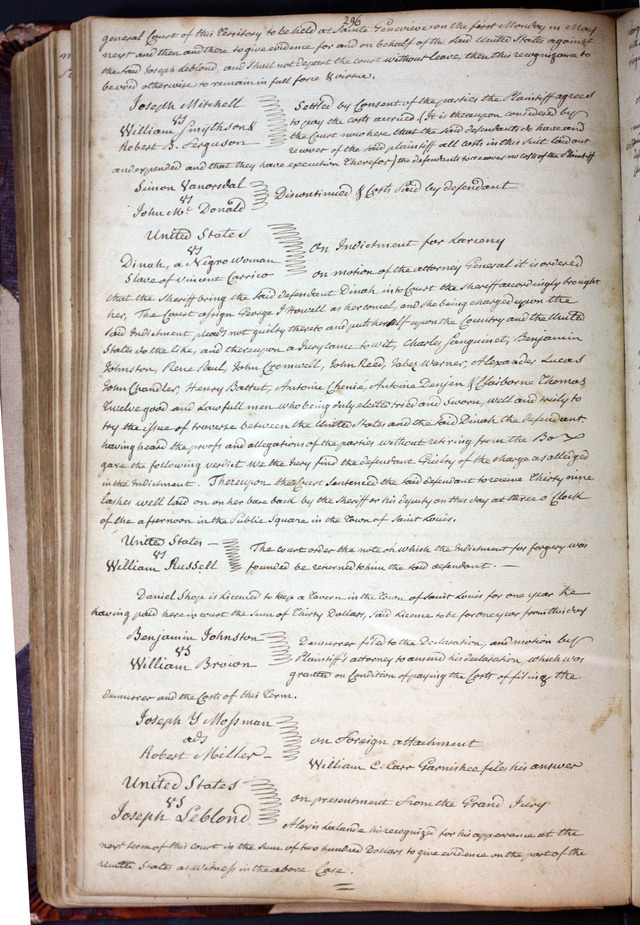 296
general Court of this Territory to be held at Sainte Genevieve on the first Monday in May
next and then and there to give evidence for and on behalf of the Said United States against
the Said Joseph Leblond, and Shall not depart the court without Leave, then this recognizance to
be void otherwise to remain in full force & virtue.
Joseph Mitchell
vs
William Smythson &
Robert B. Ferguson
Settled by Consent of the parties the Plaintiff agrees
to pay the costs accrued (It is thereupon considered by
the Court now here that the Said defendants do have and
recover of the Said plaintiff all costs in this Suit laid out
and expended and that they have execution therefor) the defendants to recover no costs of the Plaintiff
Simon Vanorsdal
vs
John Mc Donald
Discontinued & Costs paid by defendant
United States
vs
Dinah, a Negro Woman
Slave of Vincent Carrico
On Indictment for Larceny
on motion of the attorney General it is ordered
that the Sheriff bring the Said defendant Dinah into Court the Sheriff accordingly brought
her, The Court assign George I Howell as her counsel, and she being charged upon the
Said Indictment, pleads not guilty thereto and put herself upon the Country and the United
States do the like, and thereupon a Jury came to wit, Charles Sanguinet, Benjamin
Johnston, Rene Paul, John Cromwell, John Reed, Jabez Warner, Alexander Lucas
John Chandler, Henry Battut, Antoine Chenie, Antoine Danjen & Claiborne Thomas
twelve good and Lawfull men who being duly elected tried and Sworn, well and truly to
try the issue of traverse between the United States and the Said Dinah the defendant,
having heard the proofs and allegations of the parties without retiring from the Box
gave the following verdict We the Jury find the defendant Guilty of the charge as alledged
in the Indictment. Thereupon the Court Sentenced the Said defendant to receive Thirty nine
lashes well laid on on her bare back by the Sheriff or his deputy on this day at three o Clock
of the afternoon in the Public Square in the Town of Saint Louis.
United States
vs
William Russell
The court order the note on which the Indictment for forgery was
founded be returned to him the Said defendant.
Daniel Shop is Licensed to keep a Tavern in the Town of Saint Louis for one year he
having paid here in court the Sum of Thirty Dollars, Said License to be for one year from this day
Benjamin Johnston
vs
William Brown
Demurrer filed to the Declaration, and motion by
Plaintiff's attorney to amend his declaration which was
granted on Condition of paying the Costs of filing the
demurrer and the Costs of this Term.
Joseph Y Mossman
ads
Robert Miller
on Foreign attachment
William C. Carr Garnishee files his answer
United States
vs
Joseph Leblond
on presentment from the Grand Jury
Alexis Lalande his recognized for his appearance at the
next term of this court in the Sum of two hundred Dollars to give evidence on the part of the
United States as Witness in the above Case.